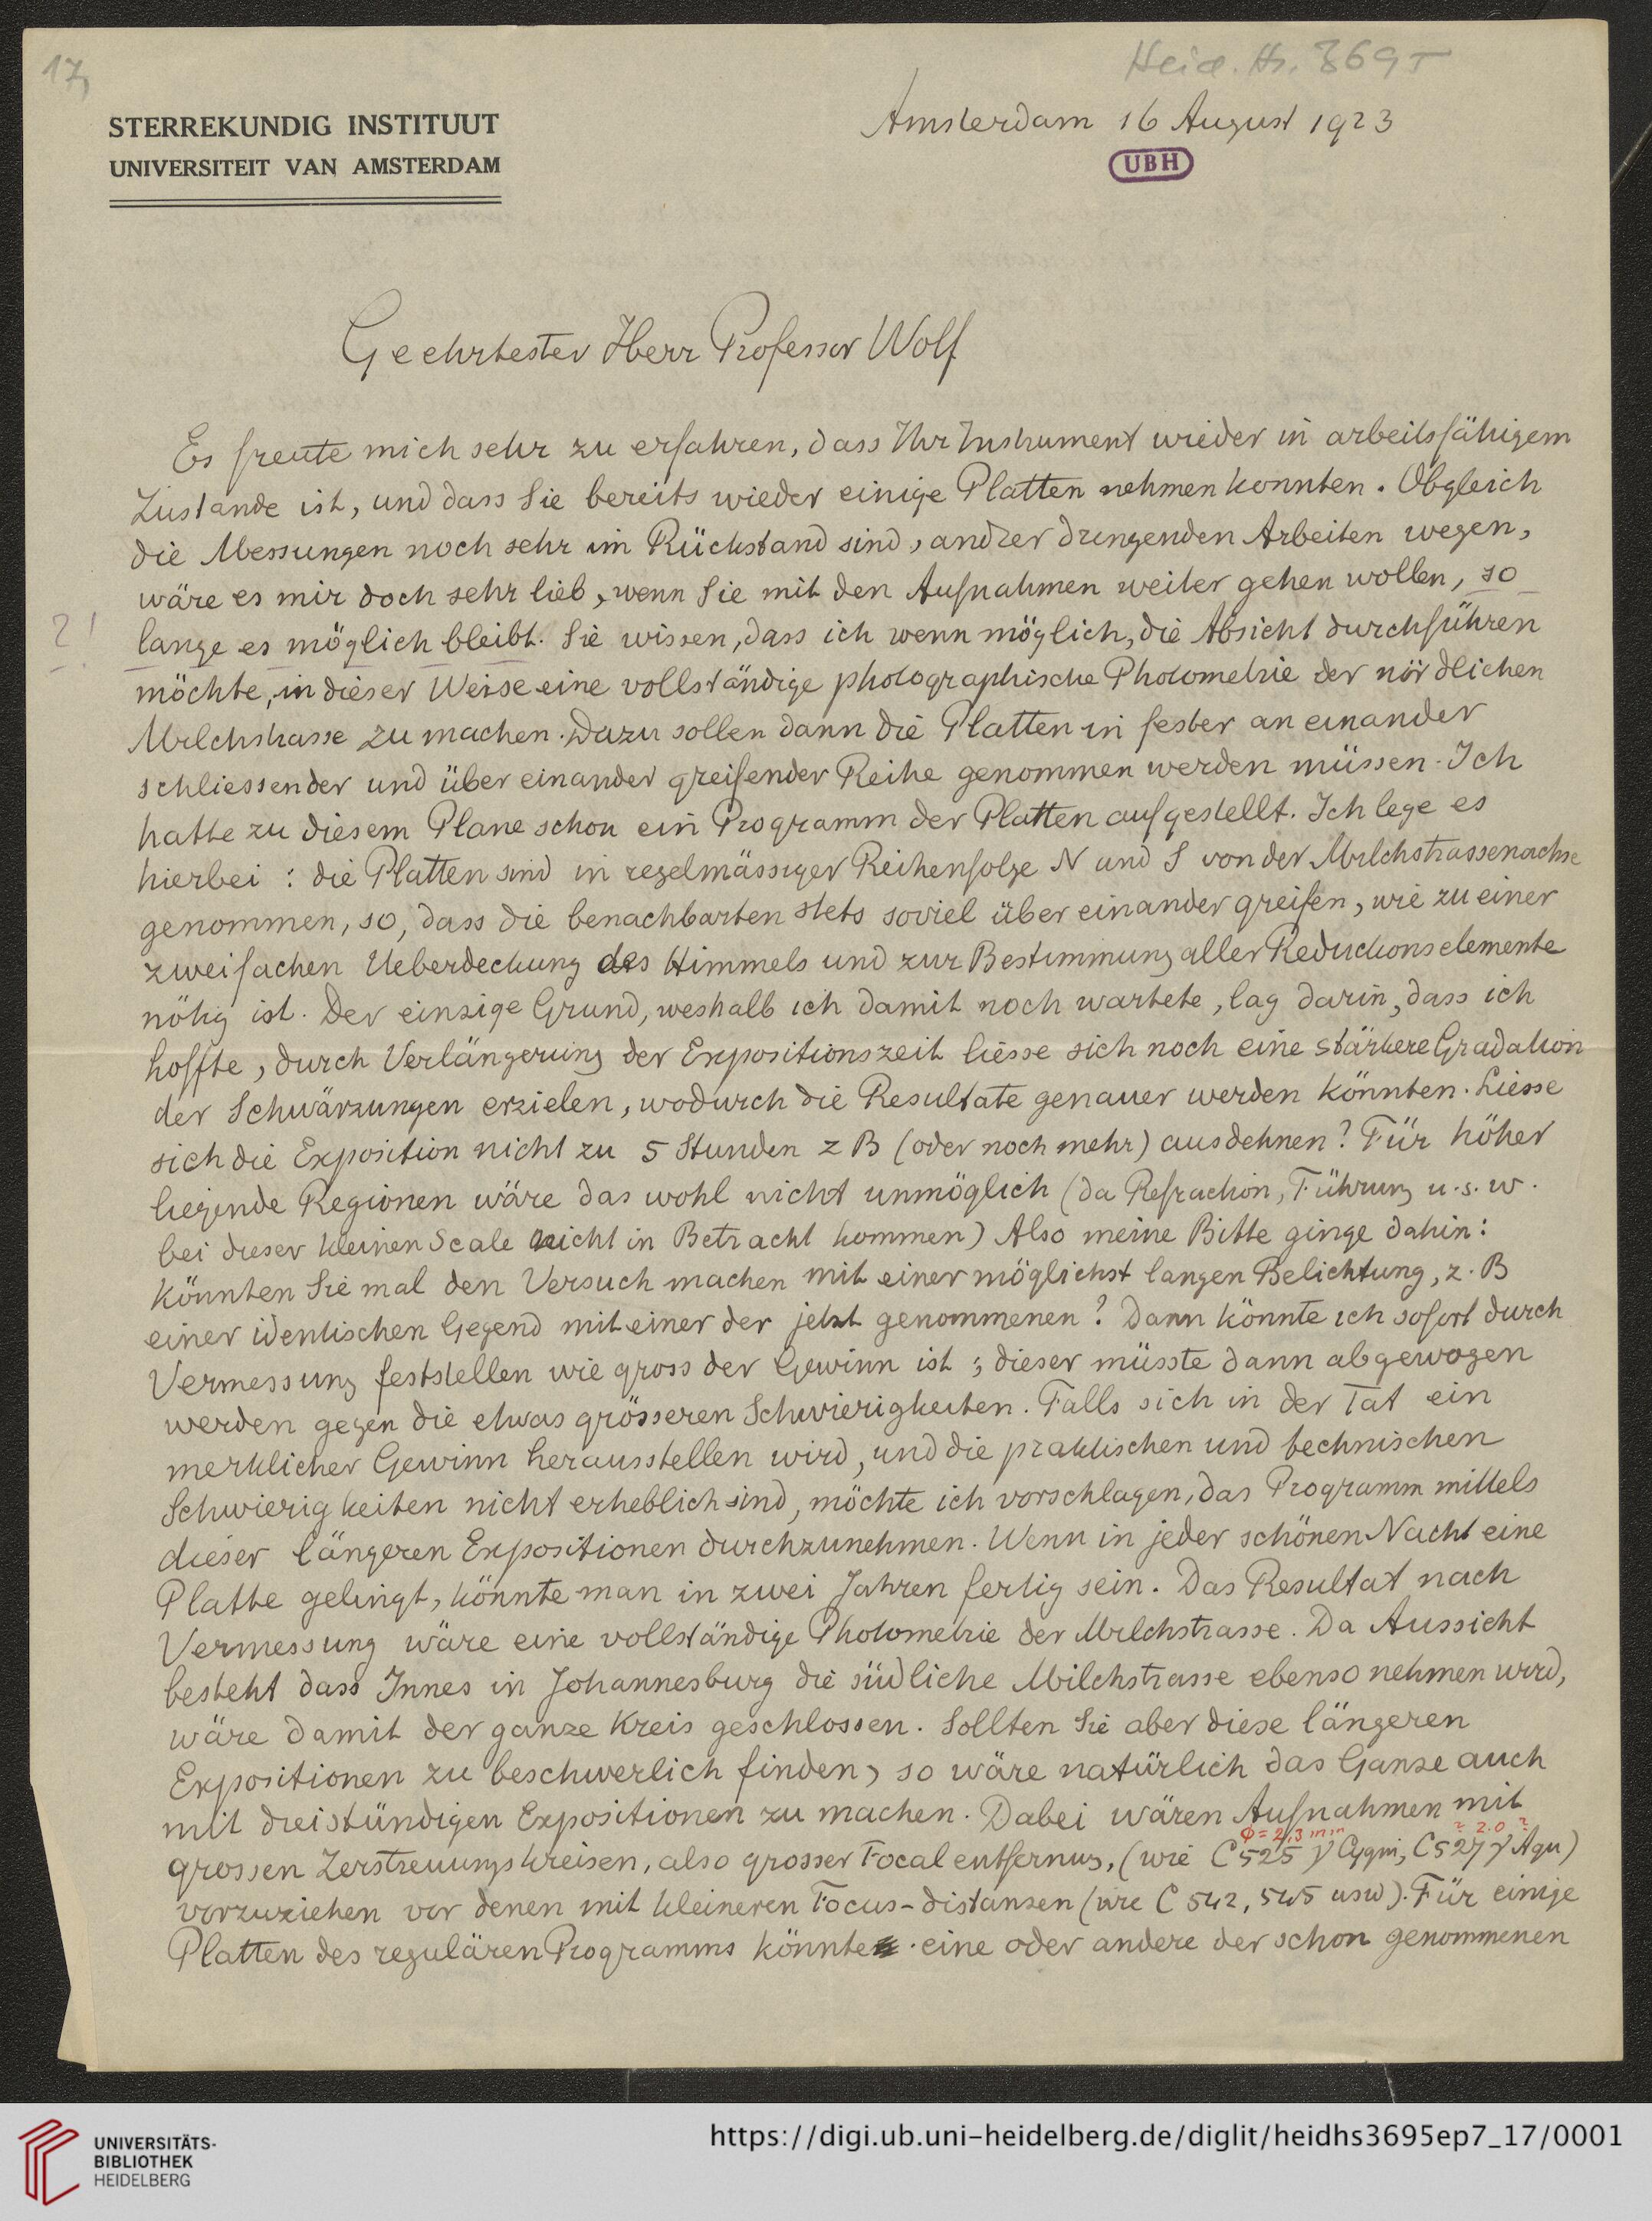 17
Heid. Hs. 3695
STERREKUNDIG INSTITUUT
UNIVERSITEIT VAN AMSTERDAM
Amsterdam 16 August 1923
UBH
Geehrtester Herr Professor Wolf
Es freute mich sehr zu erfahren, dass Ihr Instrument wieder in arbeitsfähigem
Zustande ist, und dass Sie bereits wieder einige Platten nehmen konnten. Obgleich
die Messungen noch sehr im Rückstand sind, andrer drengenden Arbeiten wegen,
wäre es mir doch sehr lieb, wenn Sie mit den Aufnahmen weiter gehen wollen, so
?! lange es möglich bleibt. Sie wissen, dass ich wenn möglich, die Absicht durchführen
möchte, in dieser Weise eine vollständige photographische Photometrie der nördlichen
Milchstrasse zu machen. Dazu sollen dann die Platten in fester an einander
schliessender und über einander greifender Reihe genommen werden müssen. Ich
hatte zu diesem Plane schon ein Programm der Platten aufgestellt. Ich lege es
hierbei : die Platten sind in regelmässiger Reihenfolge N und S von der Milchstrassenachse
genommen, so, dass die benachbarten stets soviel über einander greifen, wie zu einer
zweifachen Ueberdeckung des Himmels und zur Bestimmung aller Reductionselemente
nötig ist. Der einzige Grund, weshalb ich damit noch wartete, lag darin, dass ich
hoffte, durch Verlängerung der Expositionszeit liesse sich noch eine stärkere Gradation
der Schwärzungen erzielen, wodurch die Resultate genauer werden könnten. Liesse
sich die Exposition nicht zu 5 Stunden z B (oder noch mehr) ausdehnen? Für höher
liegende Regionen wäre das wohl nicht unmöglich (da Refraction, Führung u.s.w.
bei dieser kleinen Scale nicht in Betracht kommen) Also meine Bitte ginge dahin:
könnten Sie mal den Versuch machen mit einer möglichst langen Belichtung, z. B
einer identischen Gegend mit einer der jetzt genommenen? Dann könnte ich sofort durch
Vermessung feststellen wie gross der Gewinn ist; dieser müsste dann abgewogen
werden gegen die etwas grösseren Schwierigkeiten. Falls sich in der Tat ein
merklicher Gewinn herausstellen wird, und die praktischen und technischen
Schwierigkeiten nicht erheblich sind, möchte ich vorschlagen, das Programm mittels
dieser längeren Expositionen durchzunehmen. Wenn in jeder schönen Nacht eine
Platte gelingt, könnte man in zwei Jahren fertig sein. Das Resultat nach
Vermessung wäre eine vollständige Photometrie der Milchstrasse. Da Aussicht
besteht dass Innes in Johannesburg die südliche Milchstrasse ebenso nehmen wird,
wäre damit der ganze Kreis geschlossen. Sollten Sie aber diese längeren
Expositionen zu beschwerlich finden, so wäre natürlich das Ganze auch
mit dreistündigen Expositionen zu machen. Dabei wären Aufnahmen mit
φ = 2,3 mm ? 2.0 ?
grossen Zerstreuungskreisen, also grosser Focalentfernung, (wie C 525 γ Cygni, C 527 γ Aqu)
vorzuziehen vor denen mit kleineren Focus-distanzen (wie C 542, 545 usw). Für einige
Platten des regulären Programms könnte eine oder andere der schon genommenen
UNIVERSITÄTS-
BIBLIOTHEK
HEIDELBERG
https://digi.ub.uni-heidelberg.de/diglit/heidhs3695ep7_17/0001